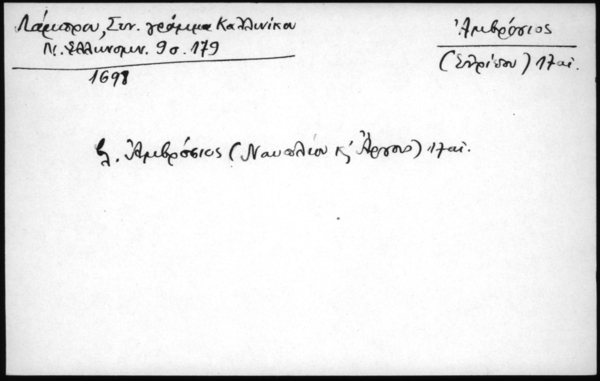 Λάμπρου, Συν. γράμμα Καλλινίκου
Ν. Ἑλληνομν. 9 σ. 179
1698
Ἀμβρόσιος
(Εὐρίπου) 17 αἰ.
βλ. Ἀμβρόσιος (Ναυπλίου κ' Ἄργους) 17 αἰ.